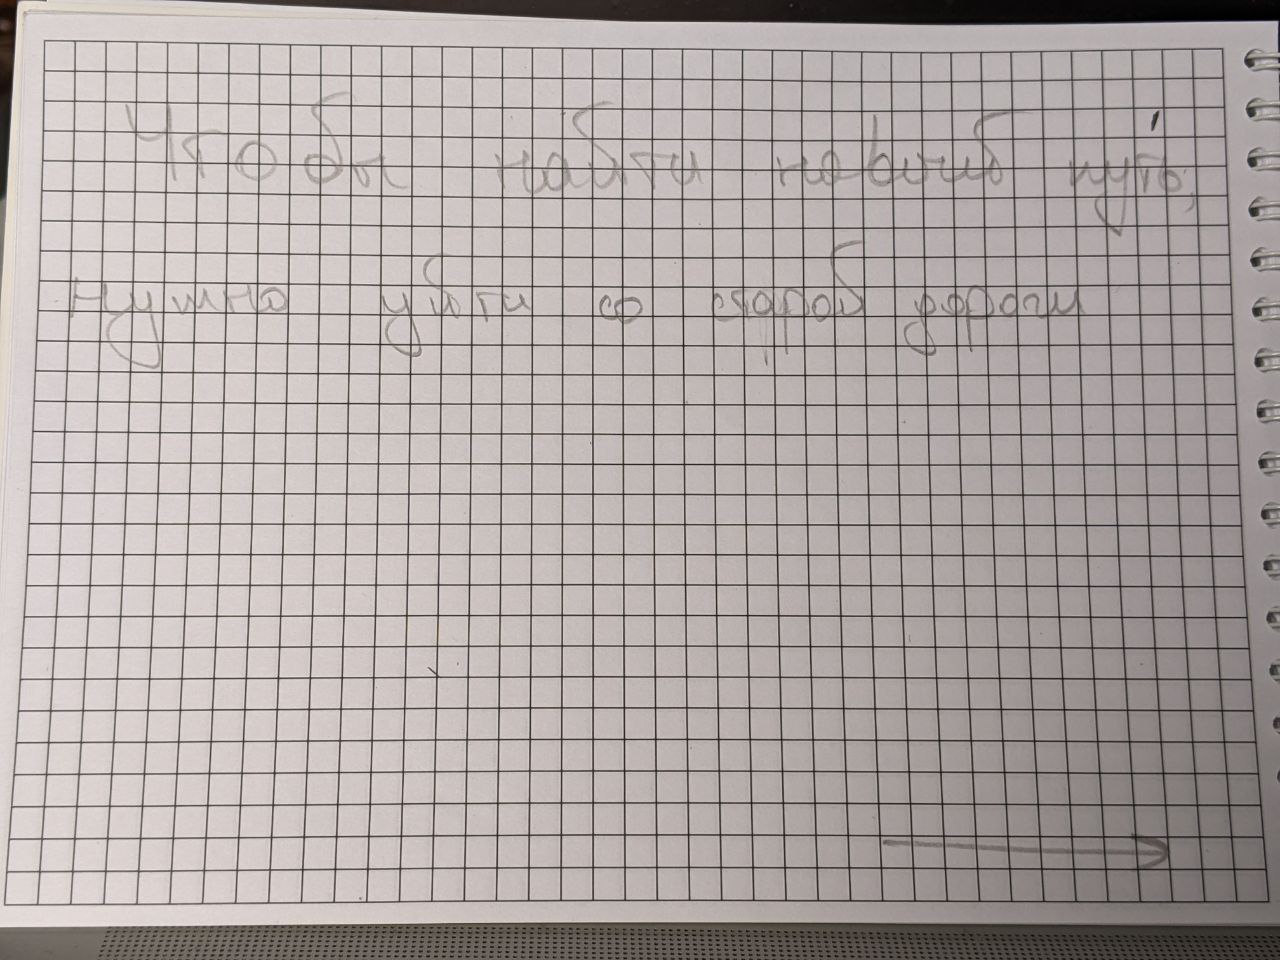 Чтобы найти новый путь,
нужно уйти со старой дороги